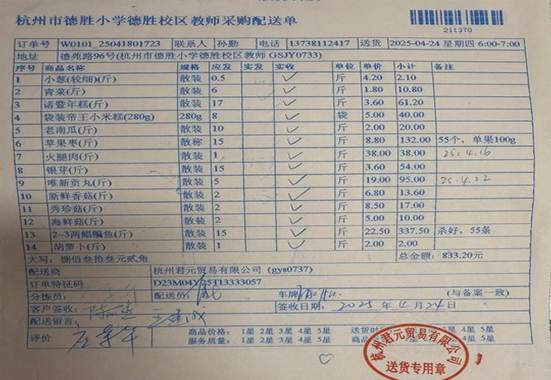 杭州市德胜小学德胜校区教师采购配送单
211370
订单号 W0101_25041801723 联系人 孙勤 电话 13738112417 送货 2025-04-24 星期四 6:00-7:00
地址 德苑路96号(杭州市德胜小学德胜校区教师 GSJY0733)
商品名称 规格 应发 实发 实收 单位 单价 小计 备注
1 小葱(较细)(斤) 散装 0.5 斤 4.20 2.10
2 青菜(斤) 散装 6 斤 1.80 10.80
3 诸暨年糕(斤) 散装 17 斤 3.60 61.20
4 袋装帝王小米糕(280g) 280g 8 袋 5.00 40.00
5 老南瓜(斤) 散装 10 斤 2.00 20.00
6 苹果枣(斤) 散称 15 斤 8.80 132.00 55个，单果100g
7 火腿肉(斤) 散装 1 斤 38.00 38.00 25.4.16
8 银芽(斤) 散装 15 斤 3.60 54.00
9 唯新贡丸(斤) 散装 5 斤 19.00 95.00 25.4.22
10 新鲜香菇(斤) 散装 2 斤 6.80 13.60
11 秀珍菇(斤) 散装 2 斤 8.50 17.00
12 海鲜菇(斤) 散装 2 斤 5.00 10.00
13 2-3两鲳鳊鱼(斤) 散装 15 斤 22.50 337.50 杀好，55条
14 胡萝卜(斤) 散装 1 斤 2.00 2.00
大写：捌佰叁拾叁元贰角 总金额：833.20元
配送商 杭州君元贸易有限公司 (gys0737)
订单特征码 D23M04Y25T13333057
分拣员： 配送员： 车牌 (与备案一致)
客户签收： 签收日期： 2025 4 24
配送留言
评价 商品价格： 1星 2星 3星 4星 5星 送货时 星 4星 5星
服务质量： 1星 2星 3星 4星 5星 4星 5星
杭州君元贸易有限公司
送货专用章